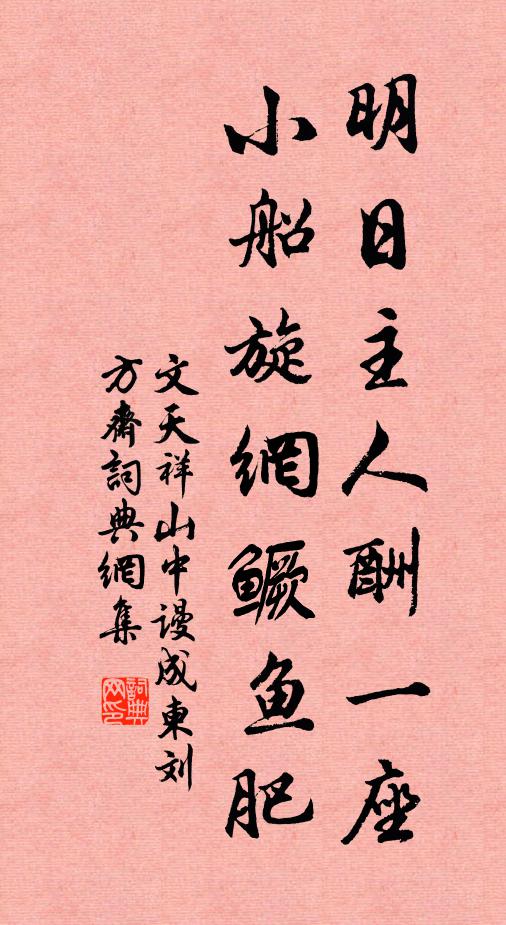 明日主人酬一座
小船旋網鳜鱼肥
文天祥山中谩成柬刘
方齋詞典網集
詞典网印